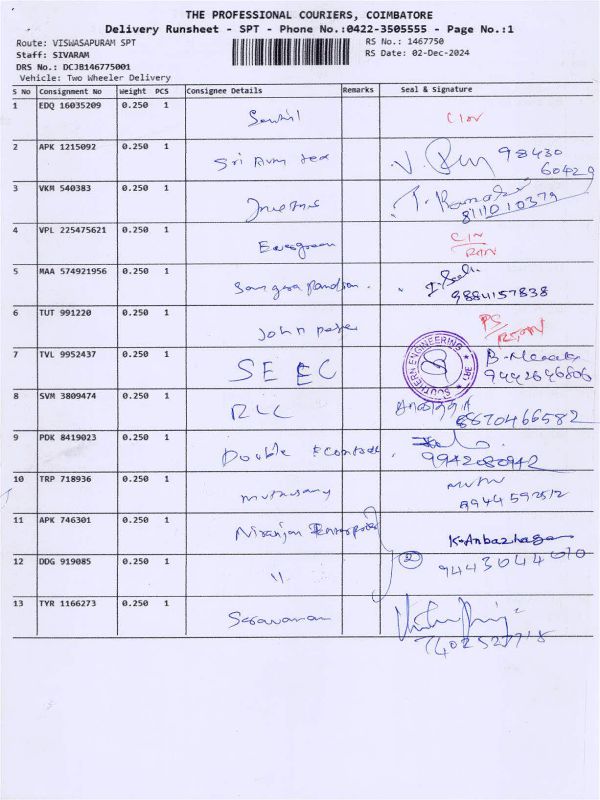 THE PROFESSIONAL COURIERS, COIMBATORE
Delivery Runsheet - SPT - Phone No.:0422-3505555 - Page No.:1
Route: VISWASAPURAM SPT RS No.: 1467750
Staff: SIVARAM RS Date: 02-Dec-2024
DRS No.: DCJB146775001
Vehicle: Two Wheeler Delivery
S No Consignment No Weight PCS Consignee Details Remarks Seal & Signature
1 EDQ 16035209 0.250 1 Senthil
2 APK 1215092 0.250 1 Sri Avm tex 98430
60429
3 VKM 540383 0.250 1 T. Ramesh
8111010379
4 VPL 225475621 0.250 1 Evergreen
5 MAA 574921956 0.250 1 Sangara Pandian
9884157838
6 TUT 991220 0.250 1 John peter
7 TVL 9952437 0.250 1 SEEC SOUTHERN ENGINEERING
9442646806
8 SVM 3809474 0.250 1 RLC
8870466582
9 PDK 8419023 0.250 1 Double
9942080942
10 TRP 718936 0.250 1 muthusamy muthu
9944592512
11 APK 746301 0.250 1 Niranjan Enterprises K. Anbazhagan
12 DDG 919085 0.250 1 " 2 9443044010
13 TYR 1166273 0.250 1 Saravanan
7402527715